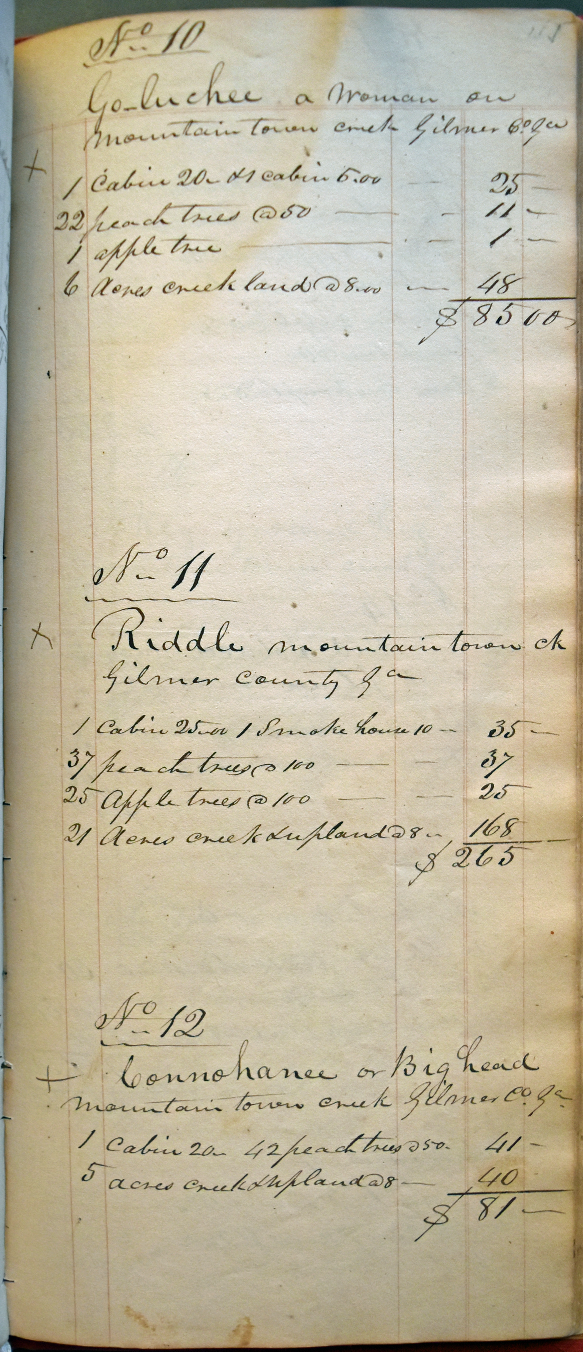 No 10
Go-luchee a Woman on
mountain town creek Gilmer Co. Ga
1 Cabin 20 - & 1 cabin 5.00 — 25 —
22 peach trees @ 50 — - 11 -
1 apple tree — - 1 —
6 Acres creek land @ 8.00 — 48
$ 85 00
No 11
Riddle mountain town ck
Gilmer County Ga
1 Cabin 25.00 1 Smoke house 10 - 35 —
37 peach trees @ 100 — — 37
25 Apple trees @ 100 — — 25
21 Acres creek & upland @ 8 - 168
$ 265
No 12
Connohanee or Big head
mountain town creek Gilmer Co. Ga
1 Cabin 20 - 42 peach trees @ 50 - 41 -
5 acres creek & upland @ 8 — 40
$ 81 —